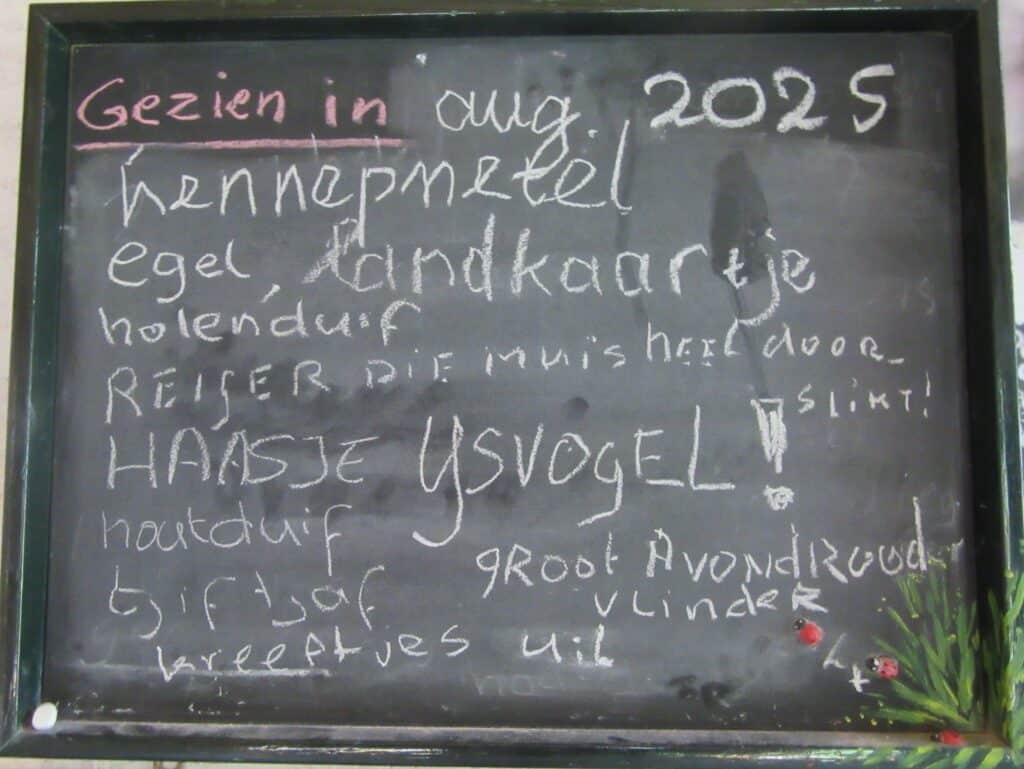 Gezien in aug. 2025
hennepnetel
egel, landkaartje
holenduif
REIGER DIE muis heel door-
slikt!
HAASJE IJSVOGEL!
houtduif
groot Avondrood
tjiftjaf
vlinder
kreeftjes uil